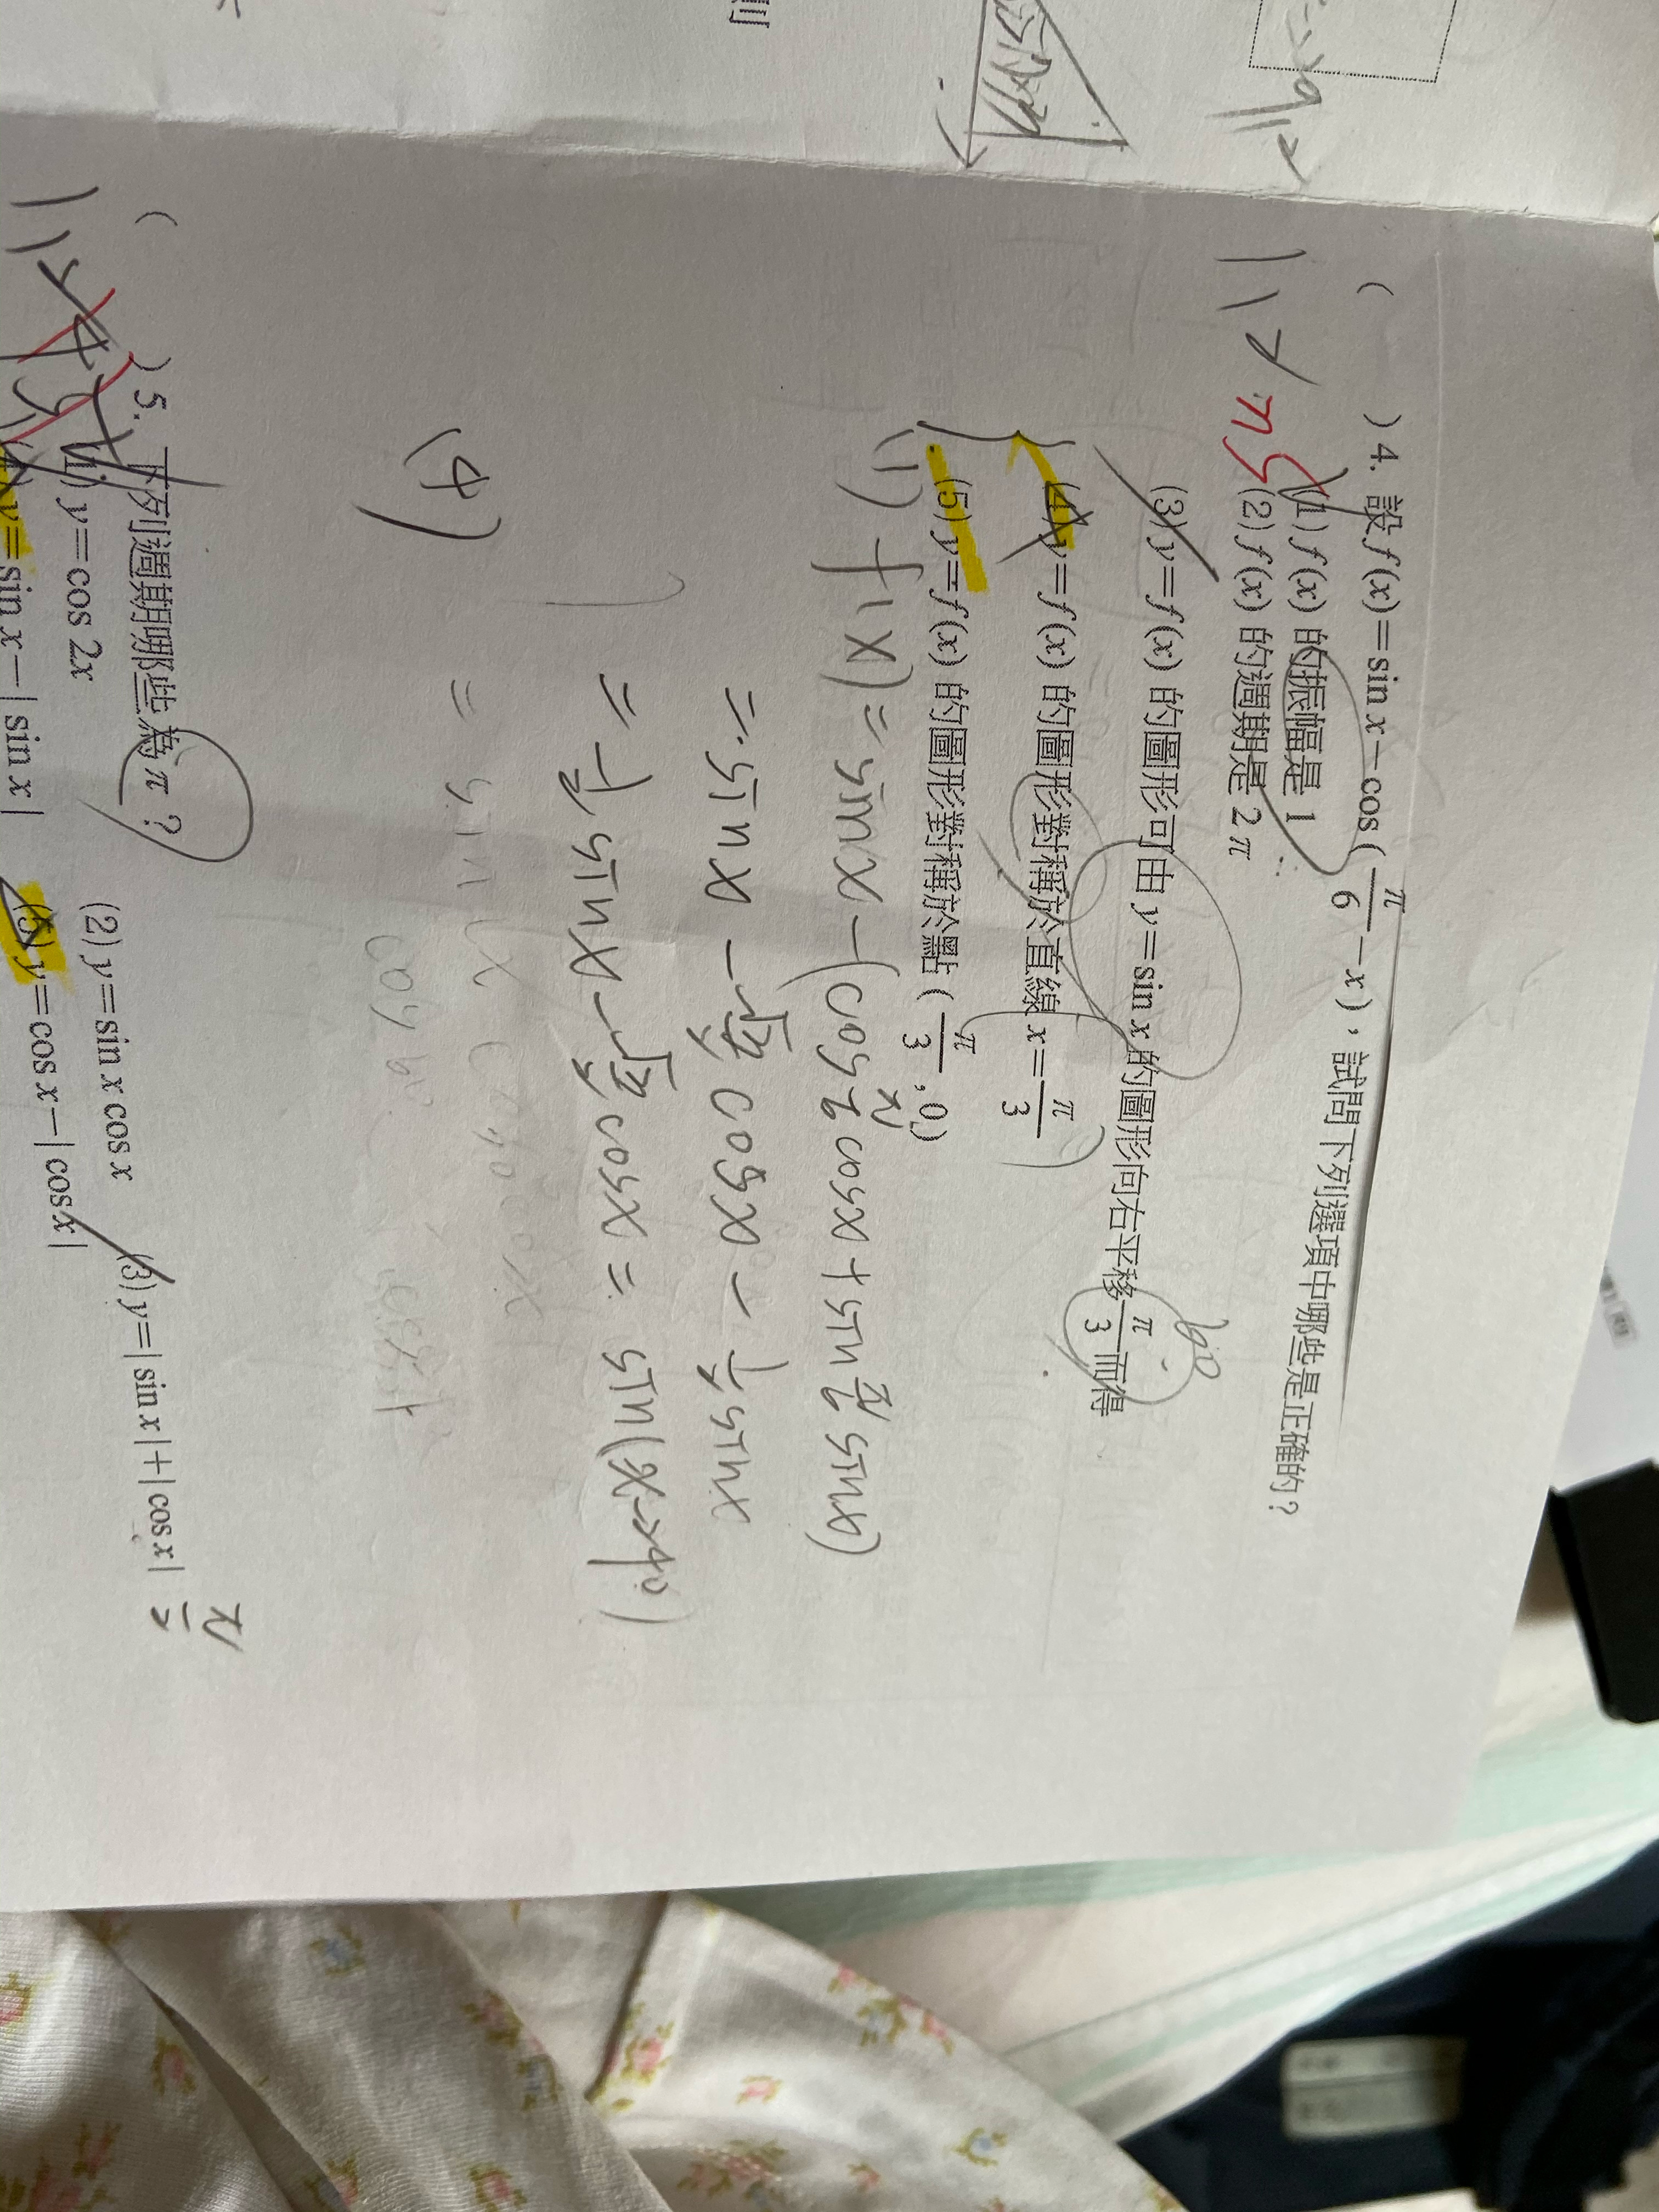 ( ) 4. 設 f(x)=sin x−cos(π/6−x),試問下列選項中哪些是正確的?
1, 2, 5
(1) f(x) 的振幅是 1
(2) f(x) 的週期是 2π
(3) y=f(x) 的圖形可由 y=sin x 的圖形向右平移 π/3 而得
60
(4) y=f(x) 的圖形對稱於直線 x=π/3
(5) y=f(x) 的圖形對稱於點 (π/3, 0)
(1) f(x) = sinx − (cos π/6 cosx + sin π/6 sinx)
= sinx − √3/2 cosx − 1/2 sinx
= 1/2 sinx − √3/2 cosx = sin(
(4)
= sin
( ) 5. 下列週期哪些為 π?
(1) y=cos 2x
(2) y=sin x cos x
(3) y=|sin x|+|cos x|
π/2
(4) y=sin x−|sin x|
(5) y=cos x−|cos x|